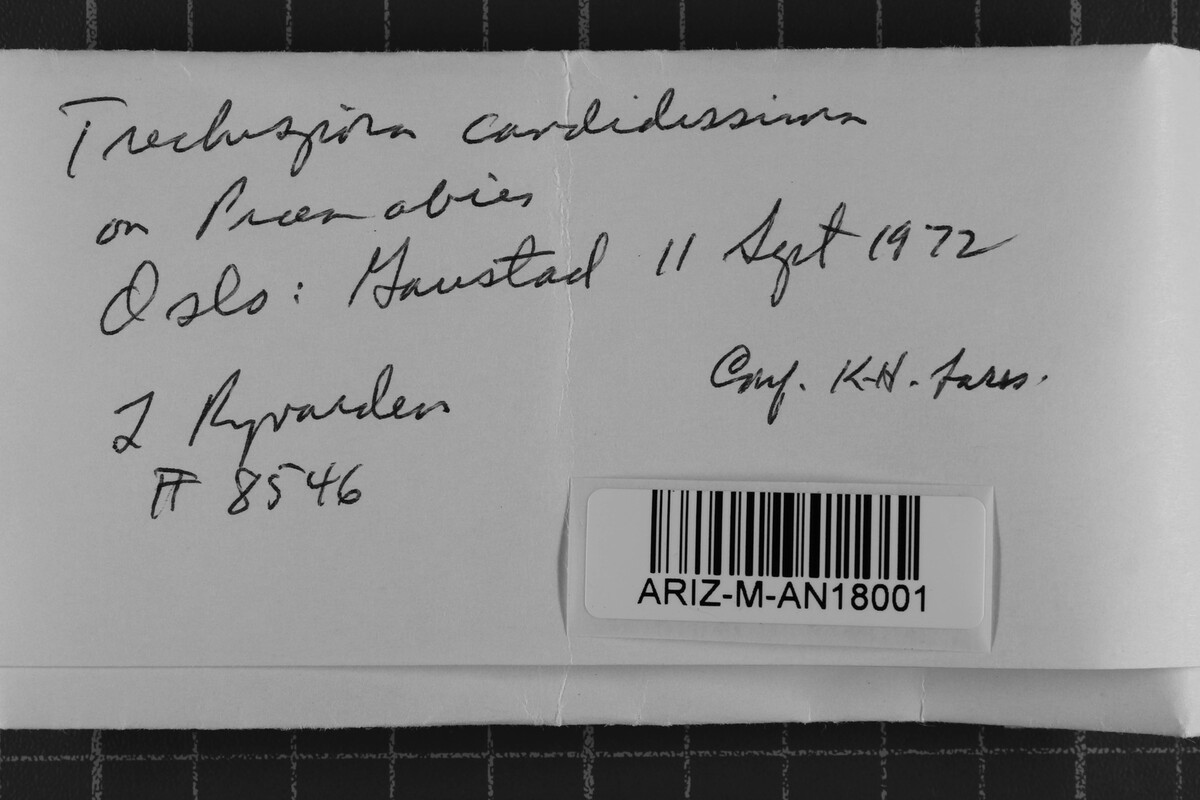 Trechispora candidissima
on Picea abies
Oslo: Gaustad 11 Sept 1972
Conf. K-H. Larss.
L Ryvarden
# 8546
ARIZ-M-AN18001